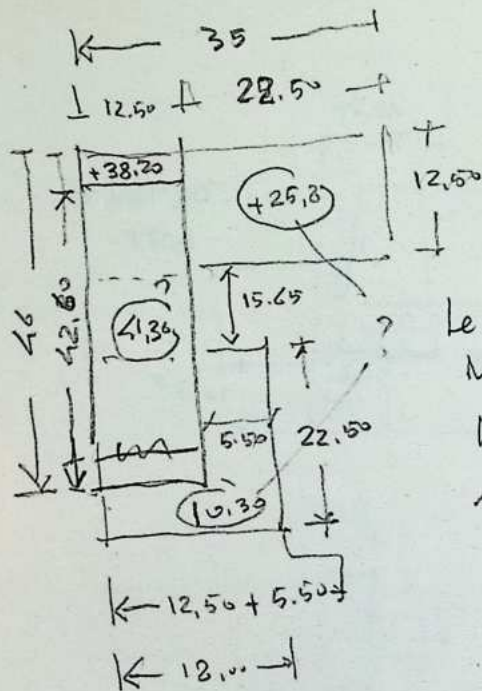 35
12.50 22.50
+38.20
+25,8
12,50
46
42.60
41,30
15.65
?
Le
5.50
22.50
10.30
12,50 + 5.50
18,00